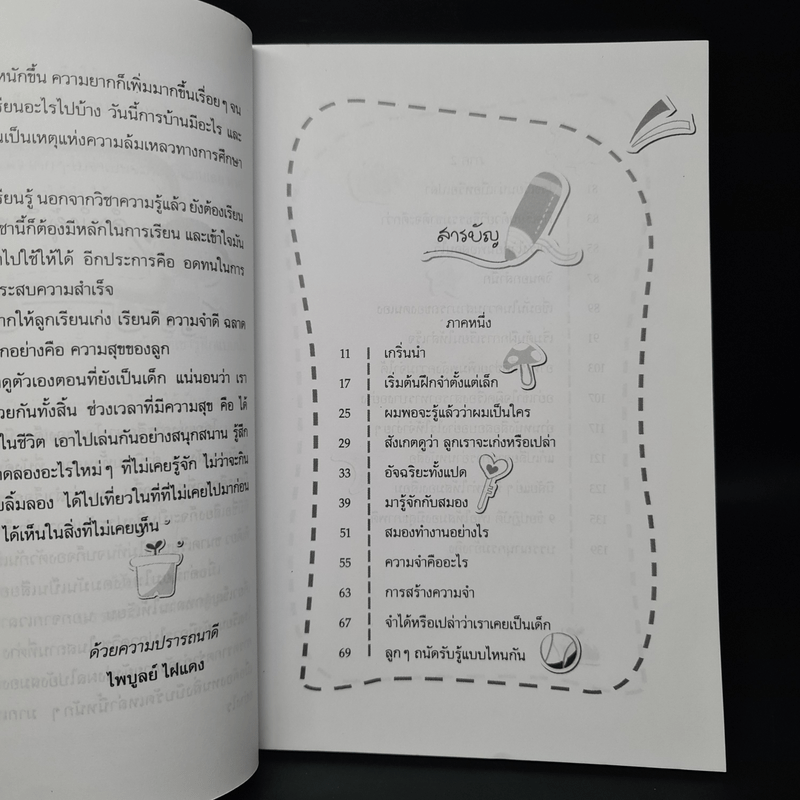 หนักขึ้น ความยากก็เพิ่มมากขึ้นเรื่อยๆ จน
เรียนอะไรไปบ้าง วันนี้การบ้านมีอะไร และ
เป็นเหตุแห่งความล้มเหลวทางการศึกษา
เรียนรู้ นอกจากวิชาความรู้แล้ว ยังต้องเรียน
ชานี้ก็ต้องมีหลักในการเรียน และเข้าใจมัน
ไปใช้ให้ได้ อีกประการคือ อดทนในการ
ประสบความสำเร็จ
ากให้ลูกเรียนเก่ง เรียนดี ความจำดี ฉลาด
กอย่างคือ ความสุขของลูก
ดูตัวเองตอนที่ยังเป็นเด็ก แน่นอนว่า เรา
วยกันทั้งสิ้น ช่วงเวลาที่มีความสุข คือ ได้
ในชีวิต เอาไปเล่นกันอย่างสนุกสนาน รู้สึก
ดลองอะไรใหม่ๆ ที่ไม่เคยรู้จัก ไม่ว่าจะกิน
ยลิ้มลอง ได้ไปเที่ยวในที่ที่ไม่เคยไปมาก่อน
ได้เห็นในสิ่งที่ไม่เคยเห็น
ด้วยความปรารถนาดี
ไพบูลย์ ไฝแดง
สารบัญ
ภาคหนึ่ง
11 เกริ่นนำ
17 เริ่มต้นฝึกจำตั้งแต่เล็ก
25 ผมพอจะรู้แล้วว่าผมเป็นใคร
29 สังเกตดูว่า ลูกเราจะเก่งหรือเปล่า
33 อัจฉริยะทั้งแปด
39 มารู้จักกับสมอง
51 สมองทำงานอย่างไร
55 ความจำคืออะไร
63 การสร้างความจำ
67 จำได้หรือเปล่าว่าเราเคยเป็นเด็ก
69 ลูกๆ ถนัดรับรู้แบบไหนกัน